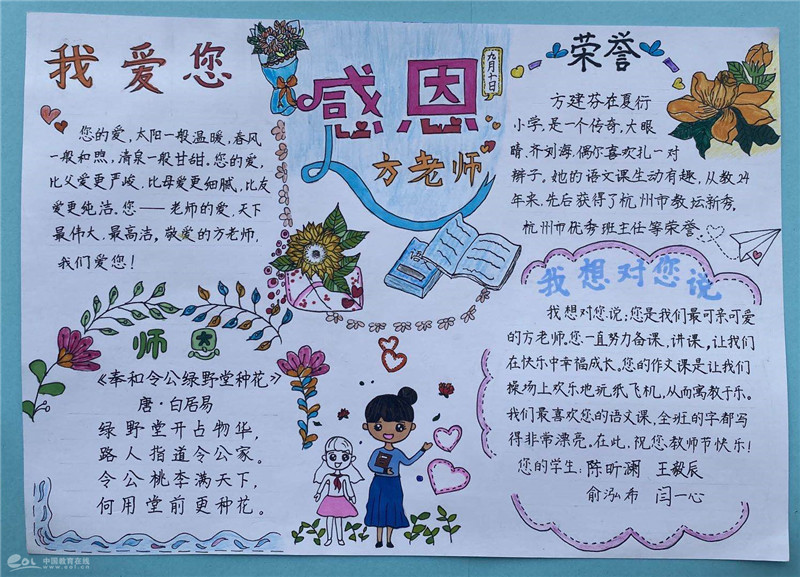 我爱您
您的爱,太阳一般温暖,春风
一般和煦,清泉一般甘甜。您的爱,
比父爱更严峻,比母爱更细腻,比友
爱更纯洁。您——老师的爱,天下
最伟大,最高洁,敬爱的方老师,
我们爱您!
师
《奉和令公绿野堂种花》
唐·白居易
绿野堂开占物华,
路人指道令公家。
令公桃李满天下,
何用堂前更种花。
感恩
九月十日
方老师
荣誉
方建芬在夏衍
小学,是一个传奇,大眼
睛、齐刘海,偶尔喜欢扎一对
辫子,她的语文课生动有趣,从教24
年来,先后获得了杭州市教坛新秀,
杭州市优秀班主任等荣誉.
我想对您说
我想对您说:您是我们最可亲可爱
的方老师,您一直努力备课,讲课,让我们
在快乐中幸福成长。您的作文课是让我们
操场上欢乐地玩纸飞机,从而寓教于乐。
我们最喜欢您的语文课,全班的字都写
得非常漂亮。在此,祝您:教师节快乐!
您的学生:陈昕澜 王毅辰
俞泓希 闫一心
eol 中国教育在线
www.eol.cn